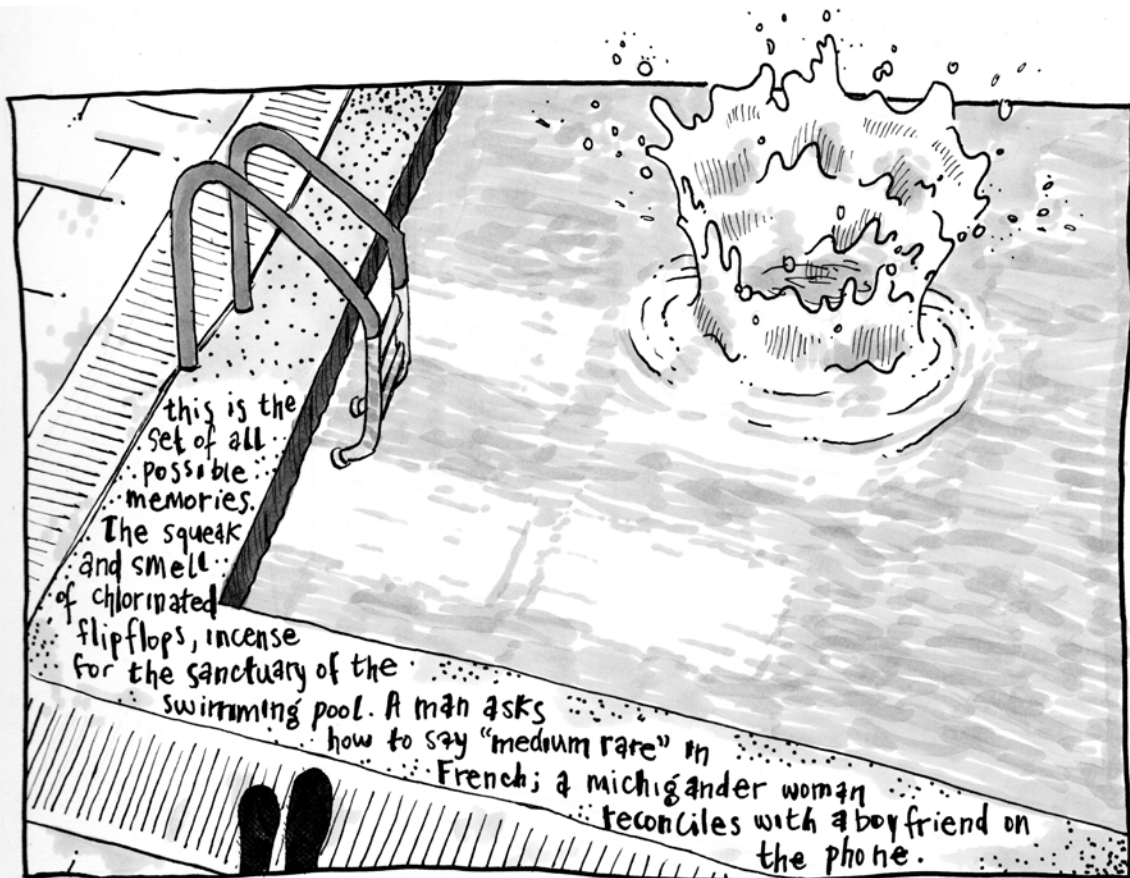 this is the
set of all
possible
memories.
The squeak
and smell
of chlorinated
flipflops, incense
for the sanctuary of the
swimming pool. A man asks
how to say "medium rare" in
French; a michigander woman
reconciles with a boyfriend on
the phone.